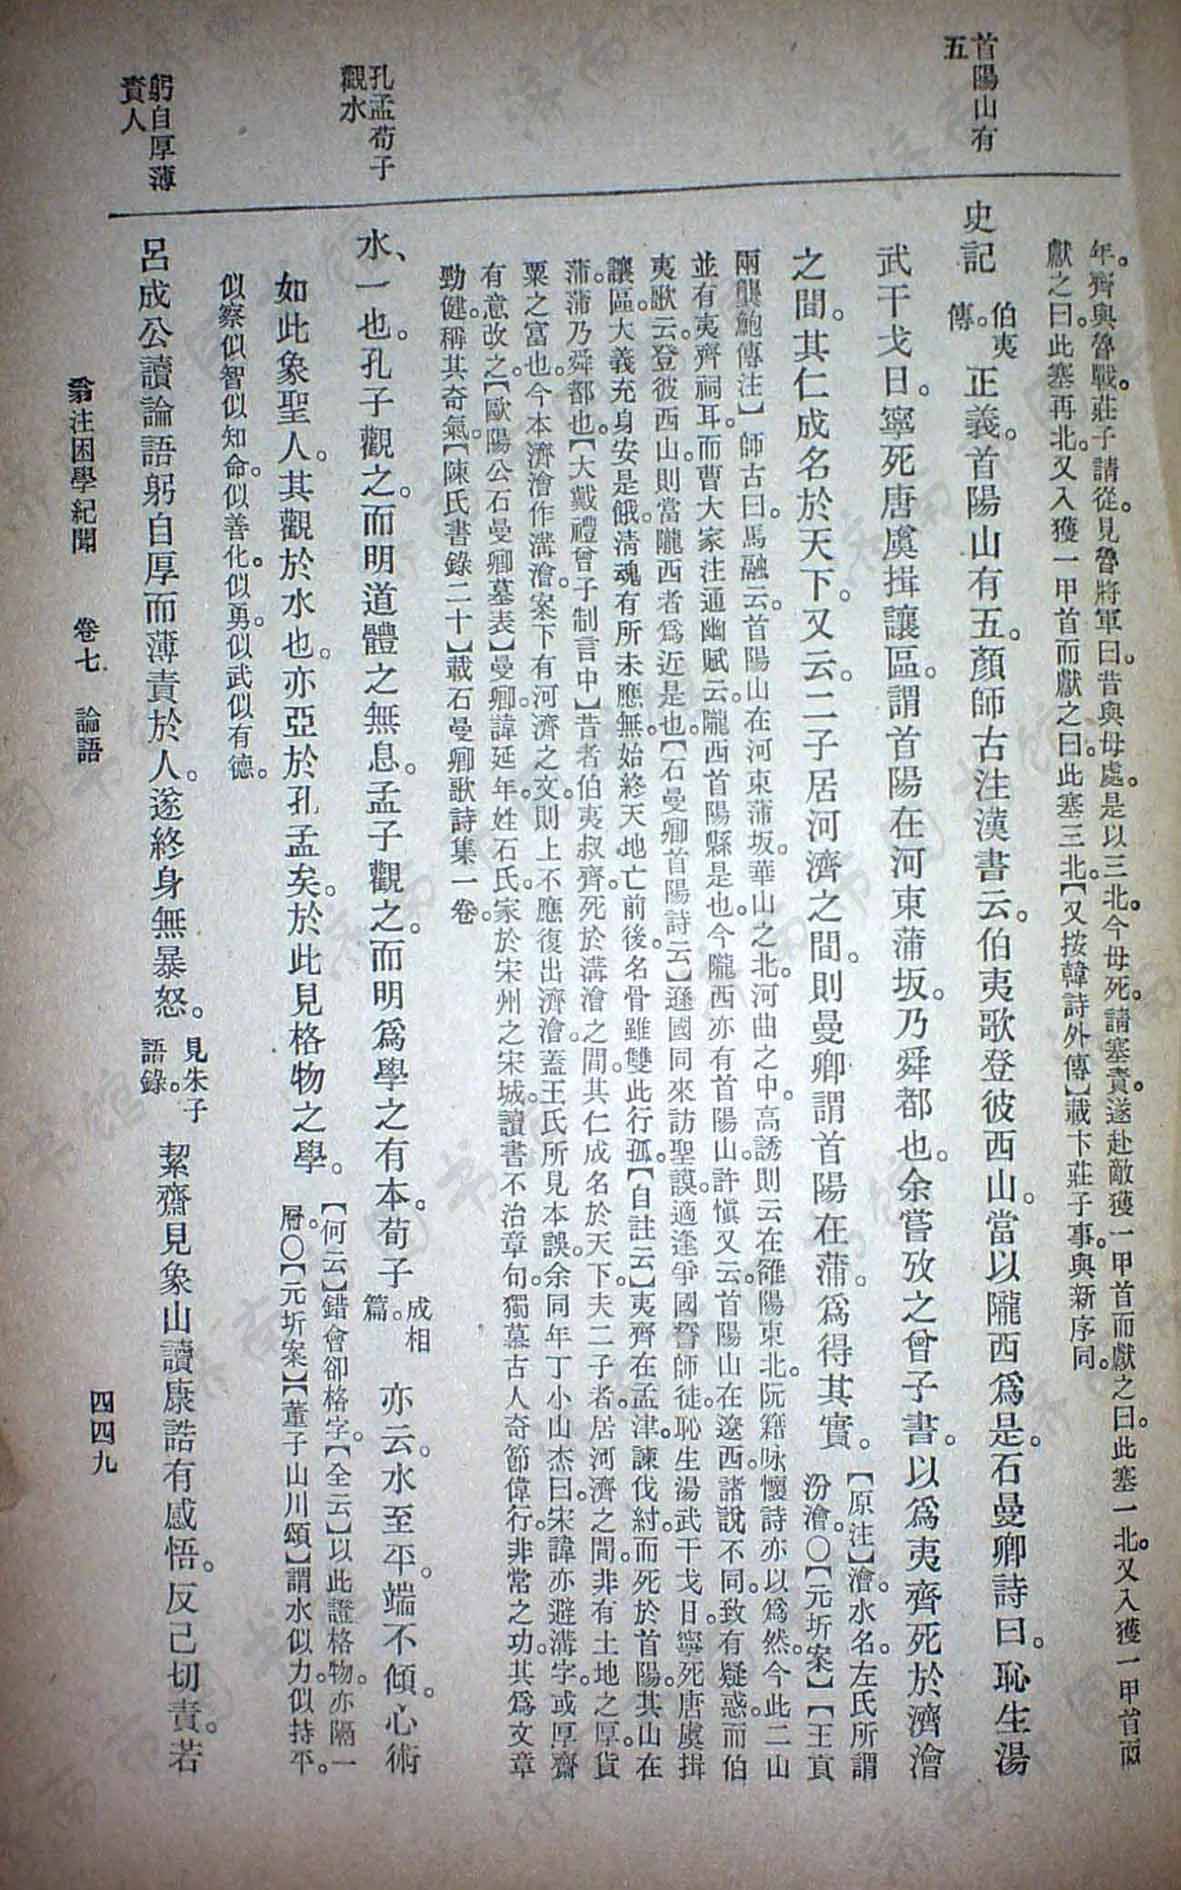 首陽山有
五
孔孟荀子
觀水
躬自厚薄
責人
年。齊與魯戰。莊子請從。見魯將軍曰。昔與母處。是以三北。今母死。請塞責。遂赴敵獲一甲首而獻之曰。此塞一北。又入獲一甲首而
獻之曰。此塞再北。又入獲一甲首而獻之曰。此塞三北。【又按韓詩外傳】載卞莊子事。與新序同。
史記伯夷傳。正義。首陽山有五。顏師古注漢書云。伯夷歌登彼西山。當以隴西爲是。石曼卿詩曰。恥生湯
武干戈日。寧死唐虞揖讓區。謂首陽在河東蒲坂。乃舜都也。余嘗攷之曾子書。以爲夷齊死於濟澮
之間。其仁成名於天下。又云。二子居河濟之間。則曼卿謂首陽在蒲。爲得其實。【原注】澮。水名。左氏所謂
汾澮。〇【元圻案】【王貢
兩龔鮑傳注】師古曰。馬融云。首陽山在河東蒲坂。華山之北。河曲之中。高誘則云在雒陽東北。阮籍咏懷詩亦以爲然。今此二山
並有夷齊祠耳。而曹大家注通幽賦云。隴西首陽縣是也。今隴西亦有首陽山。許愼又云。首陽山在遼西。諸說不同。致有疑惑。而伯
夷歌云。登彼西山。則當隴西者爲近是也。【石曼卿首陽詩云】遜國同來訪聖謨。適逢爭國誓師徒。恥生湯武干戈日。寧死唐虞揖
讓區。大義充身安是餓。淸魂有所未應無。始終天地亡前後。名骨雖雙此行孤。【自註云】夷齊在孟津。諫伐紂。而死於首陽。其山在
蒲。蒲乃舜都也。【大戴禮曾子制言中】昔者伯夷叔齊。死於溝澮之間。其仁成名於天下。夫二子者。居河濟之間。非有土地之厚。貨
粟之富也。今本濟澮作溝澮。案下有河濟之文。則上不應復出濟澮。蓋王氏所見本誤。余同年丁小山杰曰。宋諱亦避溝字。或厚齋
有意改之。【歐陽公石曼卿墓表】曼卿諱延年。姓石氏。家於宋州之宋城。讀書不治章句。獨慕古人奇節偉行。非常之功。其爲文章
勁健。稱其奇氣。【陳氏書錄二十】載石曼卿歌詩集一卷。
水、一也。孔子觀之。而明道體之無息。孟子觀之。而明爲學之有本。荀子成相篇。亦云。水至平。端不傾。心術
如此象聖人。其觀於水也。亦亞於孔孟矣。於此見格物之學。【何云】錯會卻格字。【全云】以此證格物。亦隔一
層。〇【元圻案】【董子山川頌】謂水似力。似持平。
似察似智似知命。似善化。似勇。似武似有德。
呂成公讀論語躬自厚而薄責於人。遂終身無暴怒。見朱子語錄。絜齋見象山讀康誥有感悟。反己切責。若
翁注困學紀聞　卷七　論語　四四九